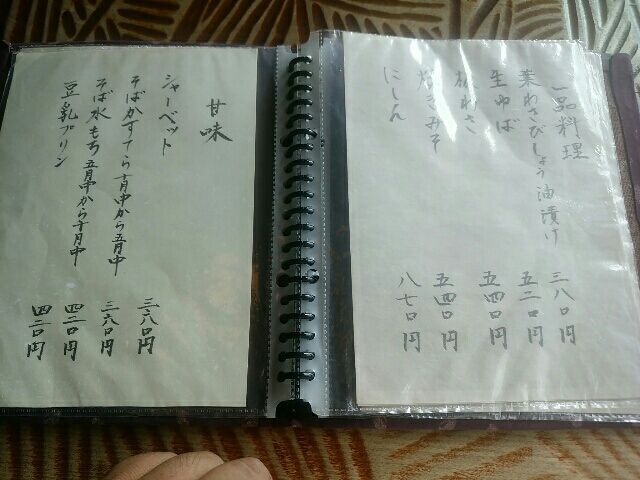 一品料理
葉わさびしょう油漬け 三八〇円
生ゆば 五二〇円
板わさ 五四〇円
焼きみそ 五四〇円
にしん 八七〇円
甘味
シャーベット 三八〇円
そばかすてら 十月中から五月中 三六〇円
そば水もち 五月中から十月中 四二〇円
豆乳プリン 四二〇円